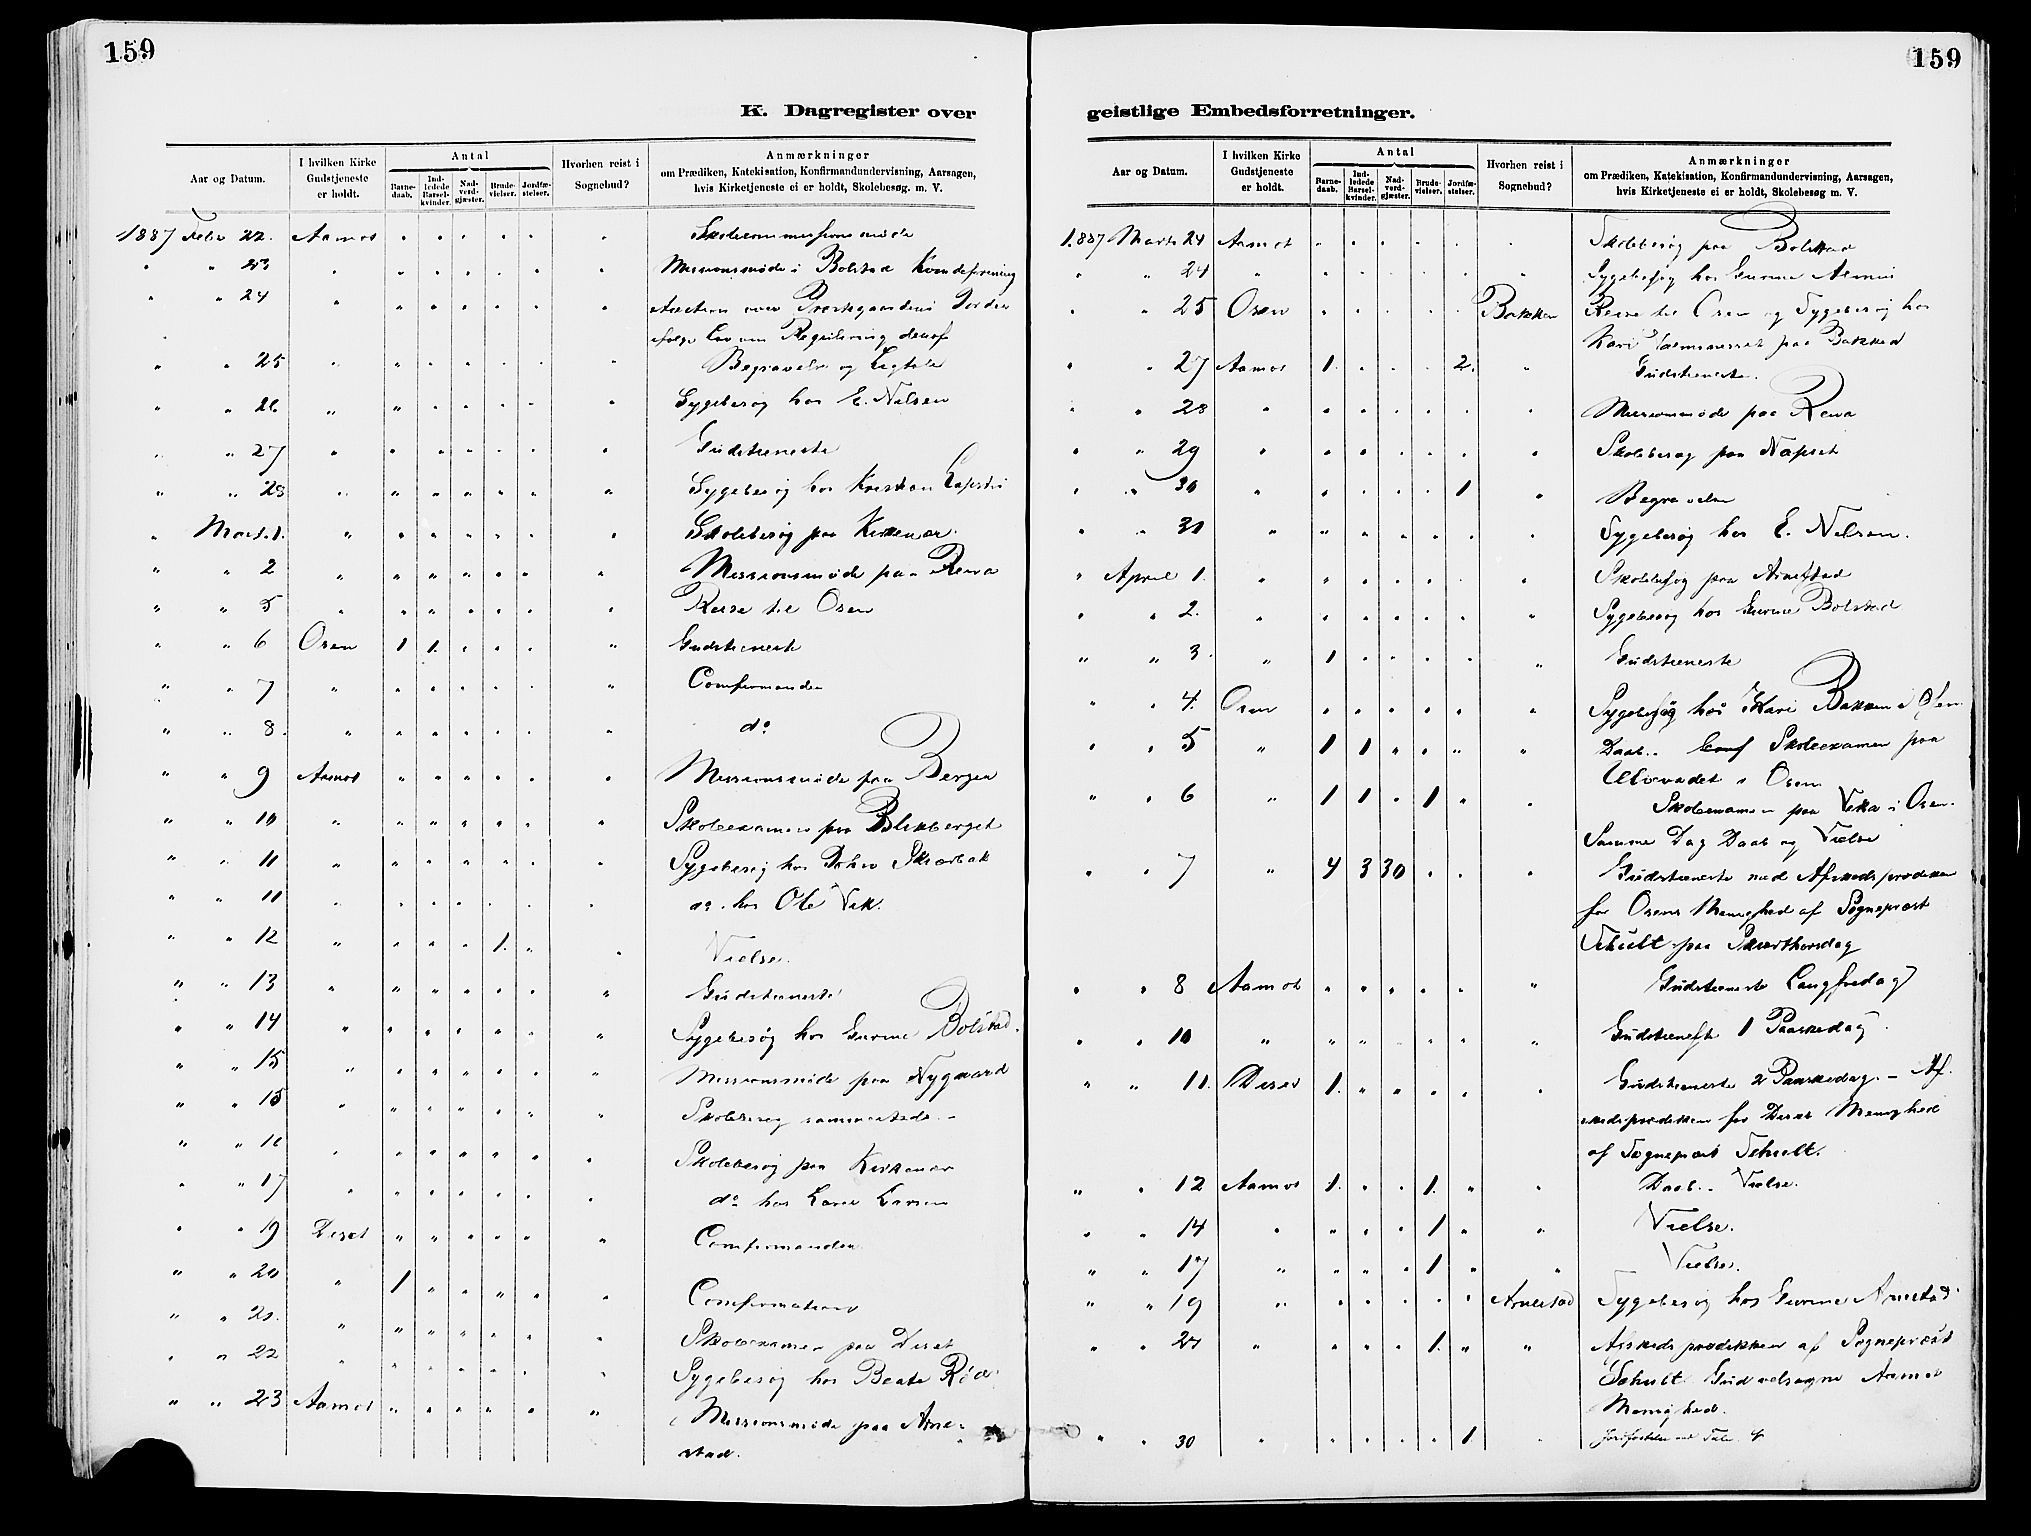 159
K. Dagregister over
Aar og Datum.
I hvilken Kirke Gudstjeneste er holdt.
Antal
Barne-daab.
Ind-ledede Barsel-kvinder.
Nad-verd-gjæster.
Brude-vielser.
Jordfæ-stelser.
Hvorhen reist i Sognebud?
Anmærkninger
om Prædiken, Katekisation, Konfirmandundervisning, Aarsagen,
hvis Kirketjeneste ei er holdt, Skolebesøg m. V.
1887 Febr 22. Aamot " " " " " " Skolecommissionsmøde
" " 23 " " " " " " " Missionsmøde i Bolstad Kvindeforening
" " 24 " " " " " " " Auction over Præstegaardens Jorder
ifølge Lov om Regulering deraf
" " 25 " " " " " " " Begravelse og Ligtale
" " 26 " " " " " " " Sygebesøg hos E. Nilsen
" " 27 " " " " " " " Gudstieneste
" " 28 " " " " " " " Sygebesøg hos Kristian
" Marts 1. " " " " " " " Skolebesøg paa Kirkenær.
" " 2 " " " " " " " Missionsmøde paa Rena
" " 5 " " " " " " " Reise til Osen
" " 6 Osen 1 1. " " " " Gudstieneste
" " 7 " " " " " " " Confirmanden
" " 8. " " " " " " " do
" " 9 Aamot " " " " " " Missionsmøde paa Bergen
" " 10 " " " " " " " Skoleexamen paa Blikberget
" " 11 " " " " " " " Sygebesøg hos John Skiærbæk
" " 11 " " " " " " " do. hos Ole Vik.
" " 12 " " " " 1. " " Vielse.
" " 13 " " " " " " " Gudstieneste
" " 14 " " " " " " " Sygebesøg hos Gurine Bolstad.
" " 15 " " " " " " " Missionsmøde paa Nygaard
" " 15 " " " " " " " Skolebesøg sammesteds. -
" " 16 " " " " " " " Skolebesøg paa Kirkenær
" " 17 " " " " " " " do hos Larsen
" " 19 Deset " " " " " " Confirmanden
" " 20 " 1 " " " " " Confirmation
" " 21. " " " " " " " Skoleexamen paa Deset
" " 22 " " " " " " " Sygebesøg hos Beate
" " 23 Aamot " " " " " " Missionsmøde paa Arne-
stad.
159
geistlige Embedsforretninger.
Aar og Datum.
I hvilken Kirke Gudstjeneste er holdt.
Antal
Barne-daab.
Ind-ledede Barsel-kvinder.
Nad-verd-gjæster.
Brude-vielser.
Jordfæ-stelser.
Hvorhen reist i Sognebud?
Anmærkninger
om Prædiken, Katekisation, Konfirmandundervisning, Aarsagen,
hvis Kirketjeneste ei er holdt, Skolebesøg m. V.
1887 Marts 24 Aamot " " " " " " Skolebesøg paa Bolstad
" " 24 " " " " " " " Sygebesøg hos Gurine
" " 25 Osen " " " " " Bakken Reise til Osen og Sygebesøg hos
Kari paa Bakken
" " 27 Aamot 1. " " " 2. " Gudstieneste.
" " 28 " " " " " " " Missionsmøde paa Rena
" " 29 " " " " " " " Skolebesøg paa Næpset
" " 30 " " " " " 1 " Begravelse
" " 31 " " " " " " " Sygebesøg hos E. Nilsen.
" April 1. " " " " " " " Skolebesøg paa Arnestad
" " 2. " " " " " " " Sygebesøg hos Gurine Bolstad
" " 3. " 1 " " " " " Gudstieneste
" " 4. Osen " " " " " " Sygebesøg hos Kari Bakken i Osen.
" " 5 " 1 1 " " " " Daab. Skoleexamen paa
i Osen
" " 6 " 1 1 " 1. " " Skoleexamen paa Vika i Osen.
Samme Dag Daab og Vielse
" " 7 " 4 3 30 " " " Gudstieneste med Afskedsprædiken
for Osens Menighed af Sognepræst
Schult paa Skiærthorsdag
" " 8 Aamot " " " " " " Gudstieneste Langfredag
" " 10 " " " " " " " Gudstieneste 1 Paaskedag.
" " 11. Deset 1. " " " " " Gudstieneste 2 Paaskedag. - Af-
skedsprædiken for Deset Menighed
af Sognepræst Schult.
" " 12 Aamot 1. " " 1. " " Daab. - Vielse.
" " 14 " " " " 1 " " Vielse.
" " 17 " " " " 1. " " Vielse.
" " 19 " " " " " " Arnestad Sygebesøg hos Gurine Arnestad
" " 24 " " " " 1. " " Afskedsprædikken af Sognepræst
Schult. Gud velsigne Aamot
Menighed.
" " 30 " " " " " 1. " Jordfæstelse med Tale